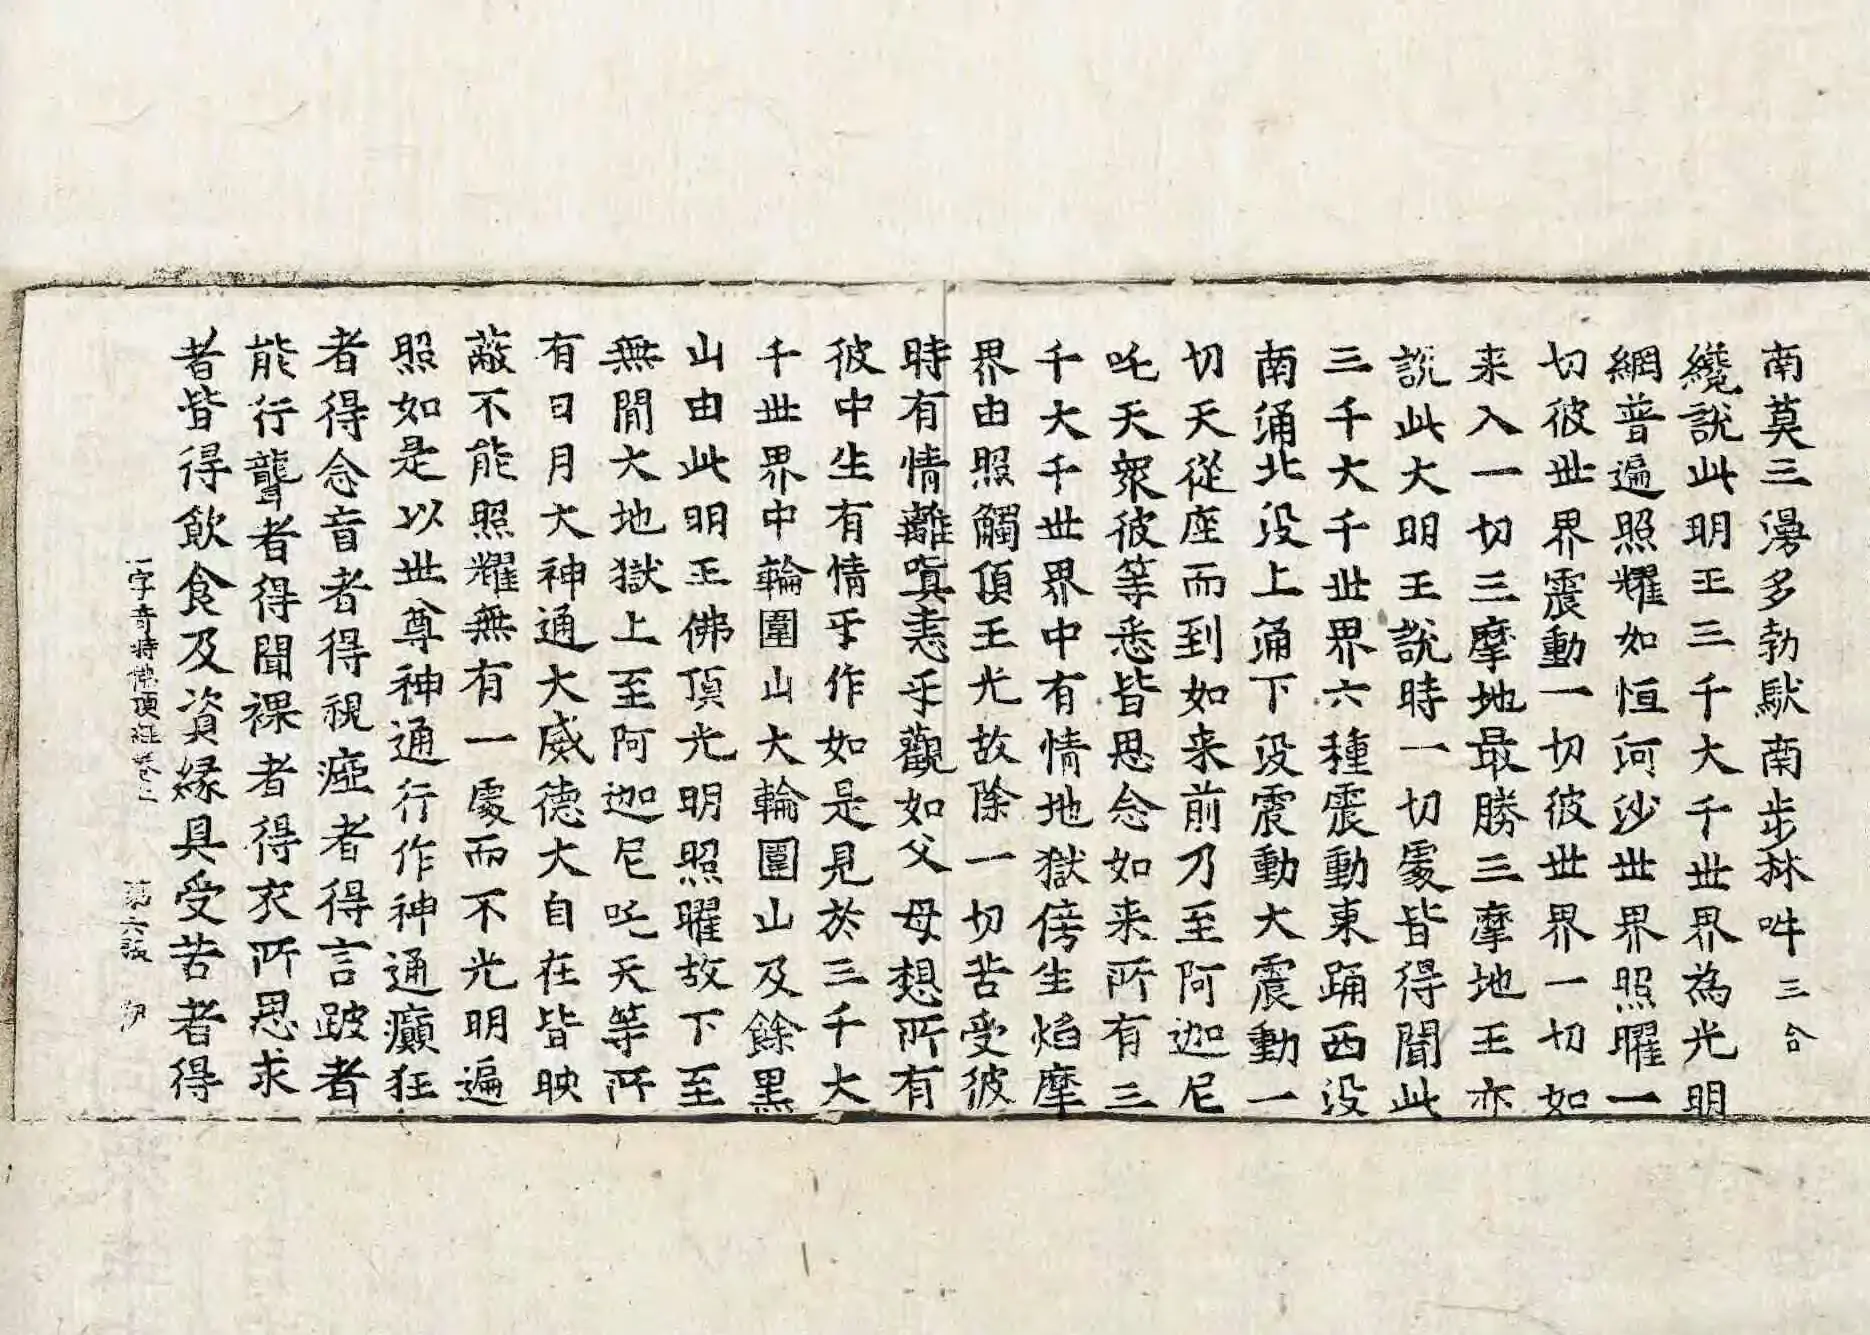 南莫三漫多勃馱南步林吽三合
纔說此明王三千大千世界為光明
網普遍照耀如恒河沙世界照曜一
切彼世界震動一切彼世界一切如
来入一切三摩地最勝三摩地王亦
說此大明王說時一切處皆得聞此
三千大千世界六種震動東踊西没
南涌北没上涌下没震動大震動一
切天從座而到如来前乃至阿迦尼
吒天衆彼等悉皆思念如来所有三
千大千世界中有情地獄傍生焰摩
界由照觸頂王光故除一切苦受彼
時有情離嗔恚乎觀如父母想所有
彼中生有情乎作如是見於三千大
千世界中輪圍山大輪圍山及餘黑
山由此明王佛頂光明照曜故下至
無間大地獄上至阿迦尼吒天等所
有日月大神通大威德大自在皆映
蔽不能照耀無有一處而不光明遍
照如是以世尊神通行作神通癲狂
者得念盲者得視瘂者得言跛者
能行聾者得聞裸者得衣所思求
者皆得飲食及資緣具受苦者得
一字奇特佛頂經卷二 第六張 伊